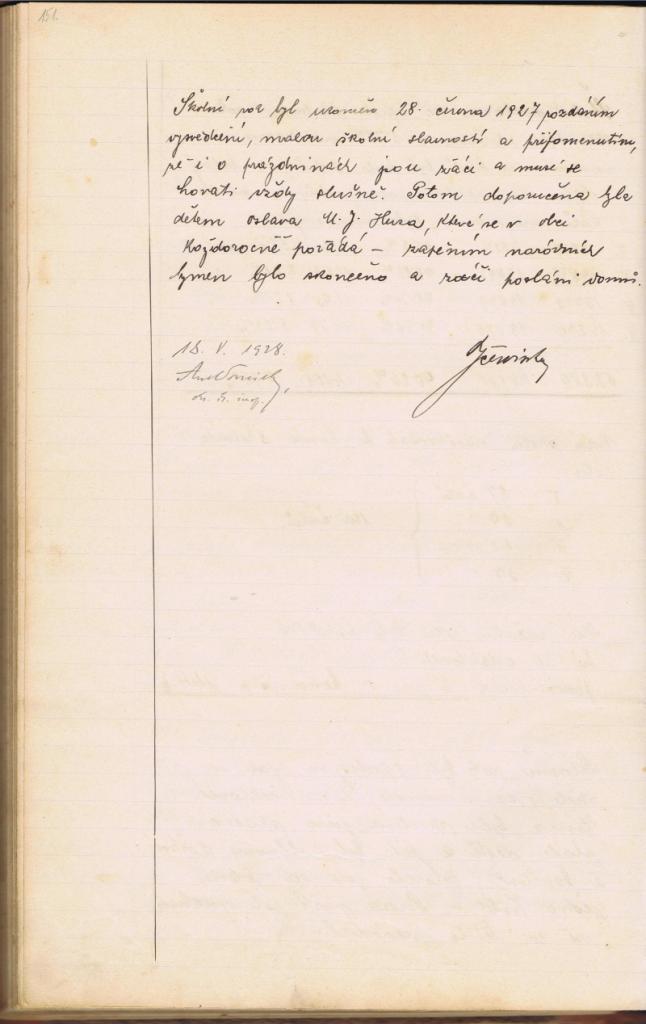 151.
Školní rok byl ukončen 28. června 1927 rozdáním
vysvědčení, malou školní slavností a připomenutím,
že i o prázdninách jsou žáci a musí se
chovati vždy slušně. Potom doporučena byla
dětem oslava M. J. Husa, které se v obci
každoročně pořádá – zapěním národních
hymen bylo skončeno a žáci posláni domů.
18. V. 1928.